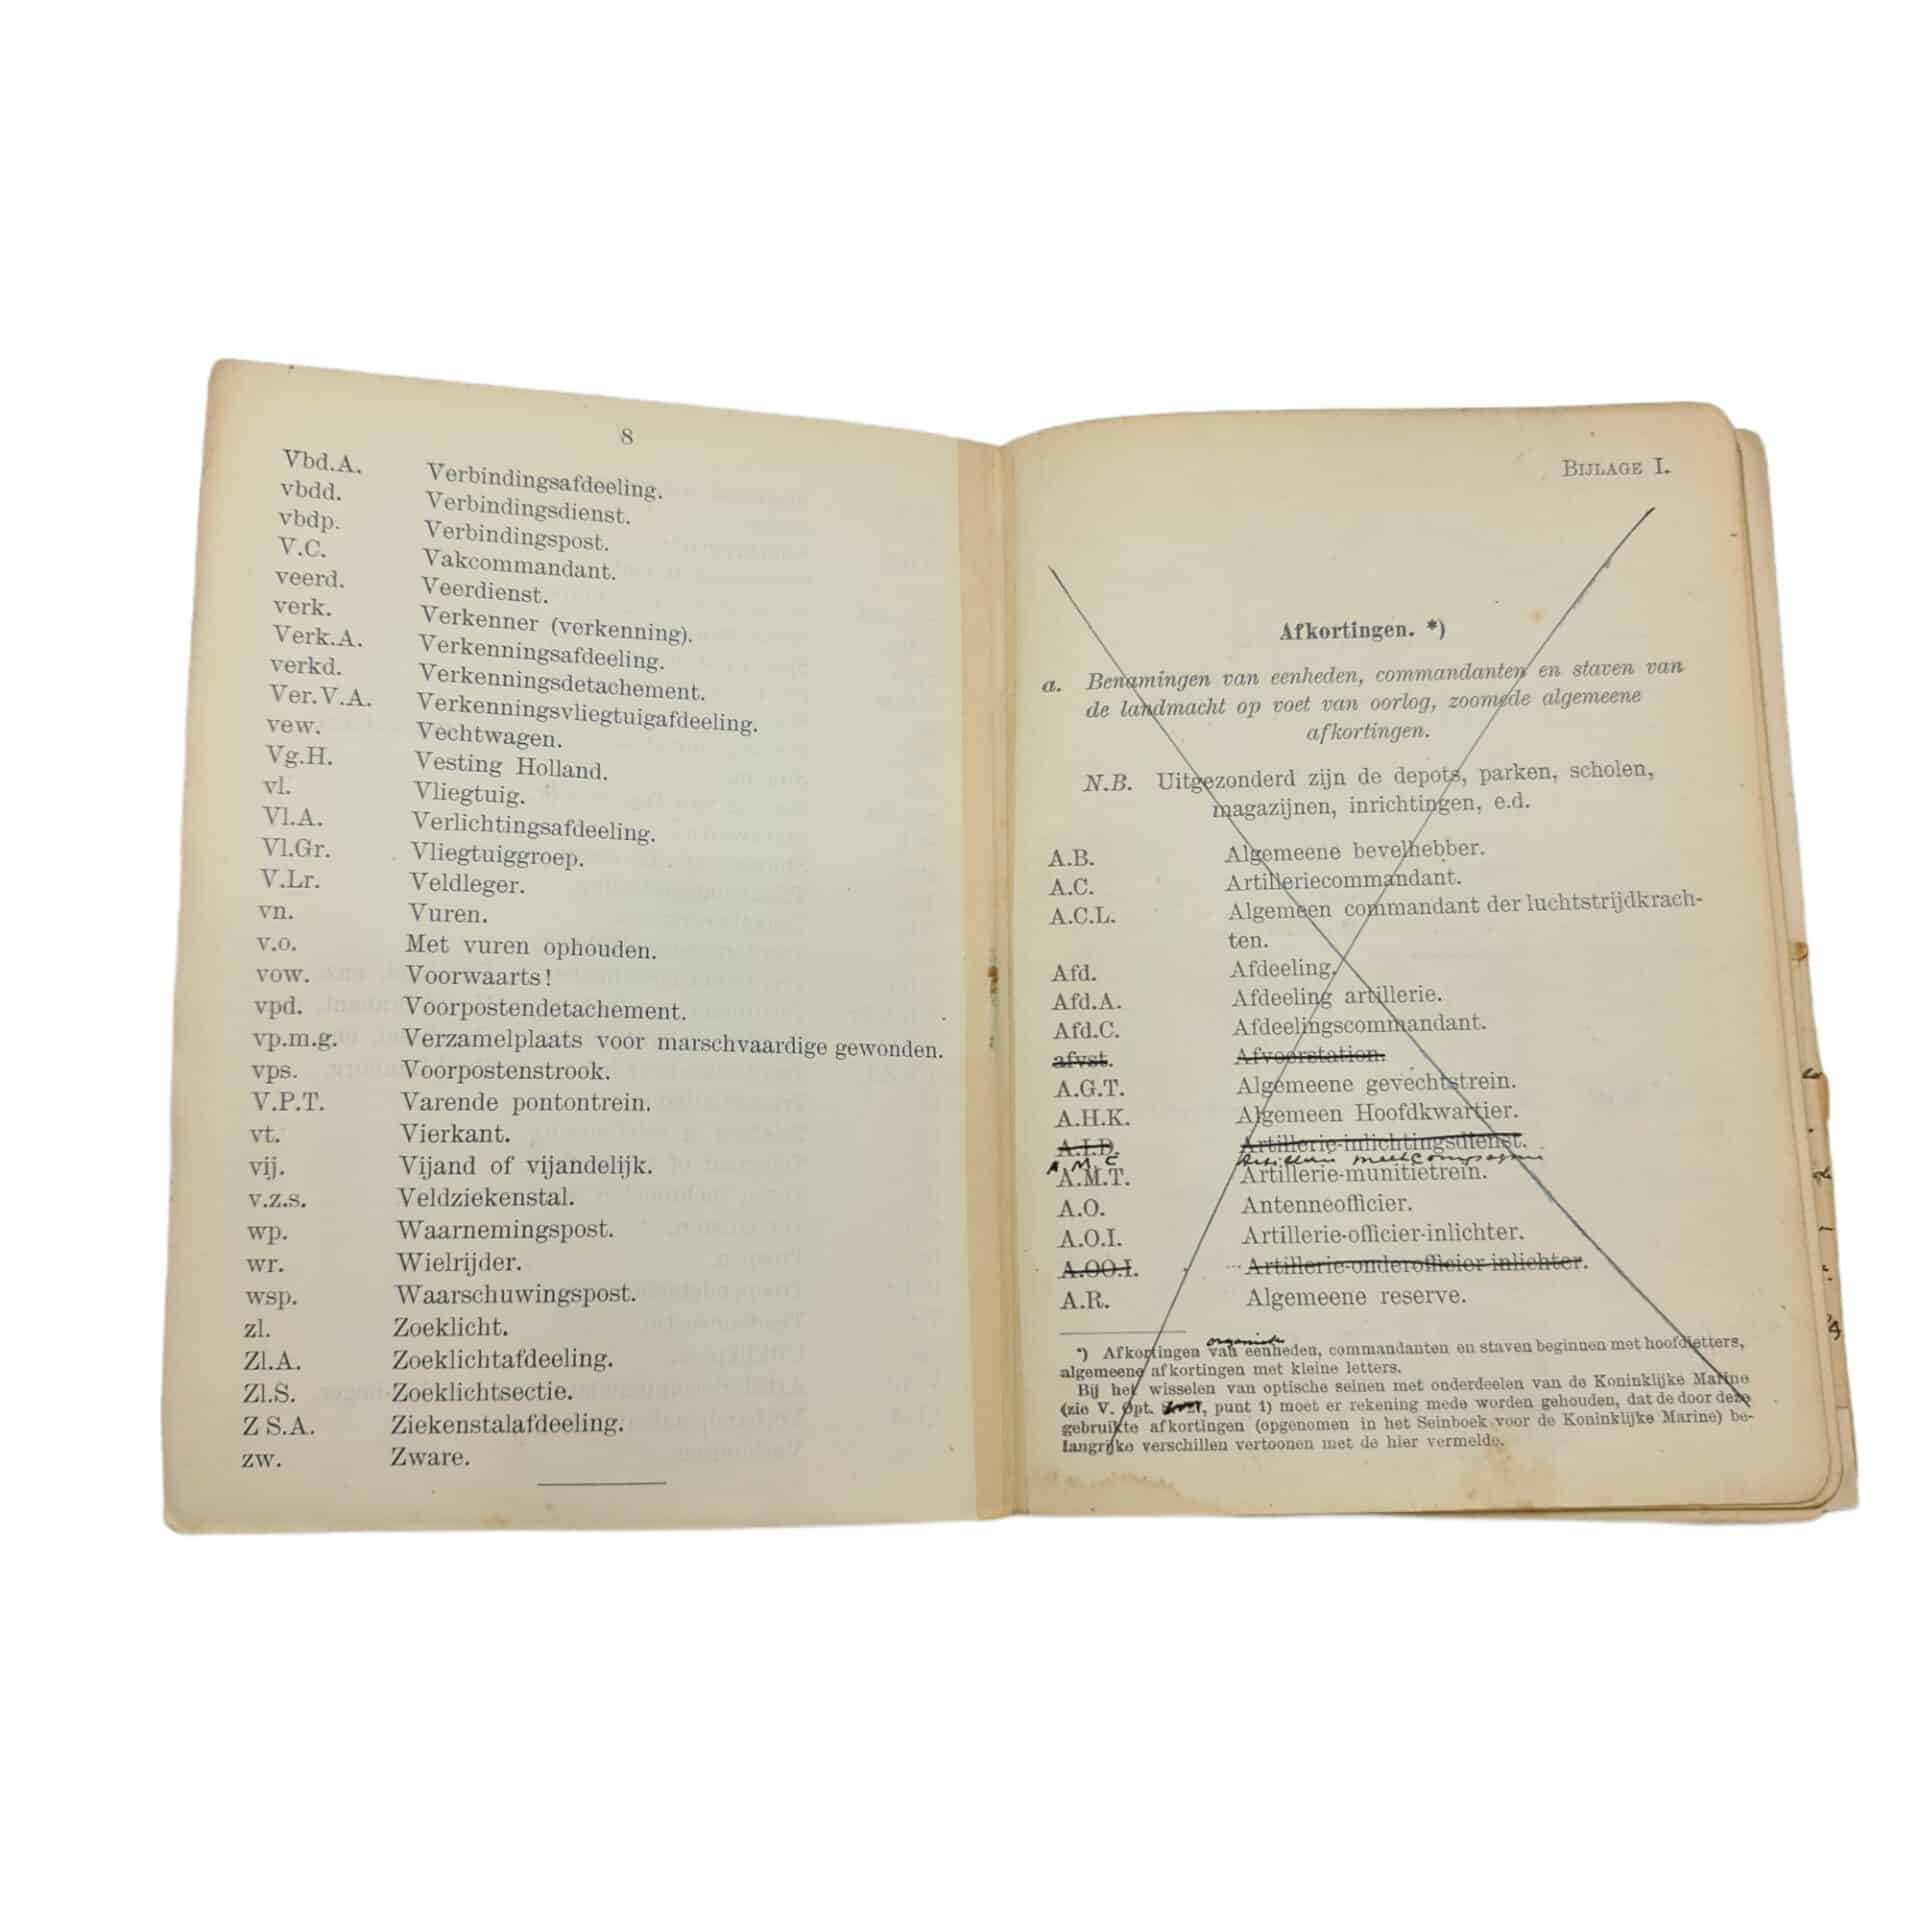 8
Vbd.A. Verbindingsafdeeling.
vbdd. Verbindingsdienst.
vbdp. Verbindingspost.
V.C. Vakcommandant.
veerd. Veerdienst.
verk. Verkenner (verkenning).
Verk.A. Verkenningsafdeeling.
verkd. Verkenningsdetachement.
Ver.V.A. Verkenningsvliegtuigafdeeling.
vew. Vechtwagen.
Vg.H. Vesting Holland.
vl. Vliegtuig.
Vl.A. Verlichtingsafdeeling.
Vl.Gr. Vliegtuiggroep.
V.Lr. Veldleger.
vn. Vuren.
v.o. Met vuren ophouden.
vow. Voorwaarts!
vpd. Voorpostendetachement.
vp.m.g. Verzamelplaats voor marschvaardige gewonden.
vps. Voorpostenstrook.
V.P.T. Varende pontontrein.
vt. Vierkant.
vij. Vijand of vijandelijk.
v.z.s. Veldziekenstal.
wp. Waarnemingspost.
wr. Wielrijder.
wsp. Waarschuwingspost.
zl. Zoeklicht.
Zl.A. Zoeklichtafdeeling.
Zl.S. Zoeklichtsectie.
Z S.A. Ziekenstalafdeeling.
zw. Zware.
BIJLAGE I.
Afkortingen. *)
a. Benamingen van eenheden, commandanten en staven van
de landmacht op voet van oorlog, zoomede algemeene
afkortingen.
N.B. Uitgezonderd zijn de depots, parken, scholen,
magazijnen, inrichtingen, e.d.
A.B. Algemeene bevelhebber.
A.C. Artilleriecommandant.
A.C.L. Algemeen commandant der luchtstrijdkrach-
ten.
Afd. Afdeeling.
Afd.A. Afdeeling artillerie.
Afd.C. Afdeelingscommandant.
afvst. Afvoerstation.
A.G.T. Algemeene gevechtstrein.
A.H.K. Algemeen Hoofdkwartier.
A.I.D. Artillerie-inlichtingsdienst.
A.M.C. Artillerie meetcompagnie
A.M.T. Artillerie-munitietrein.
A.O. Antenneofficier.
A.O.I. Artillerie-officier-inlichter.
A.OO.I. Artillerie-onderofficier-inlichter.
A.R. Algemeene reserve.
organieke
*) Afkortingen van eenheden, commandanten en staven beginnen met hoofdletters,
algemeene afkortingen met kleine letters.
Bij het wisselen van optische seinen met onderdeelen van de Koninklijke Marine
(zie V. Opt. , punt 1) moet er rekening mede worden gehouden, dat de door deze
gebruikte afkortingen (opgenomen in het Seinboek voor de Koninklijke Marine) be-
langrijke verschillen vertoonen met de hier vermelde.